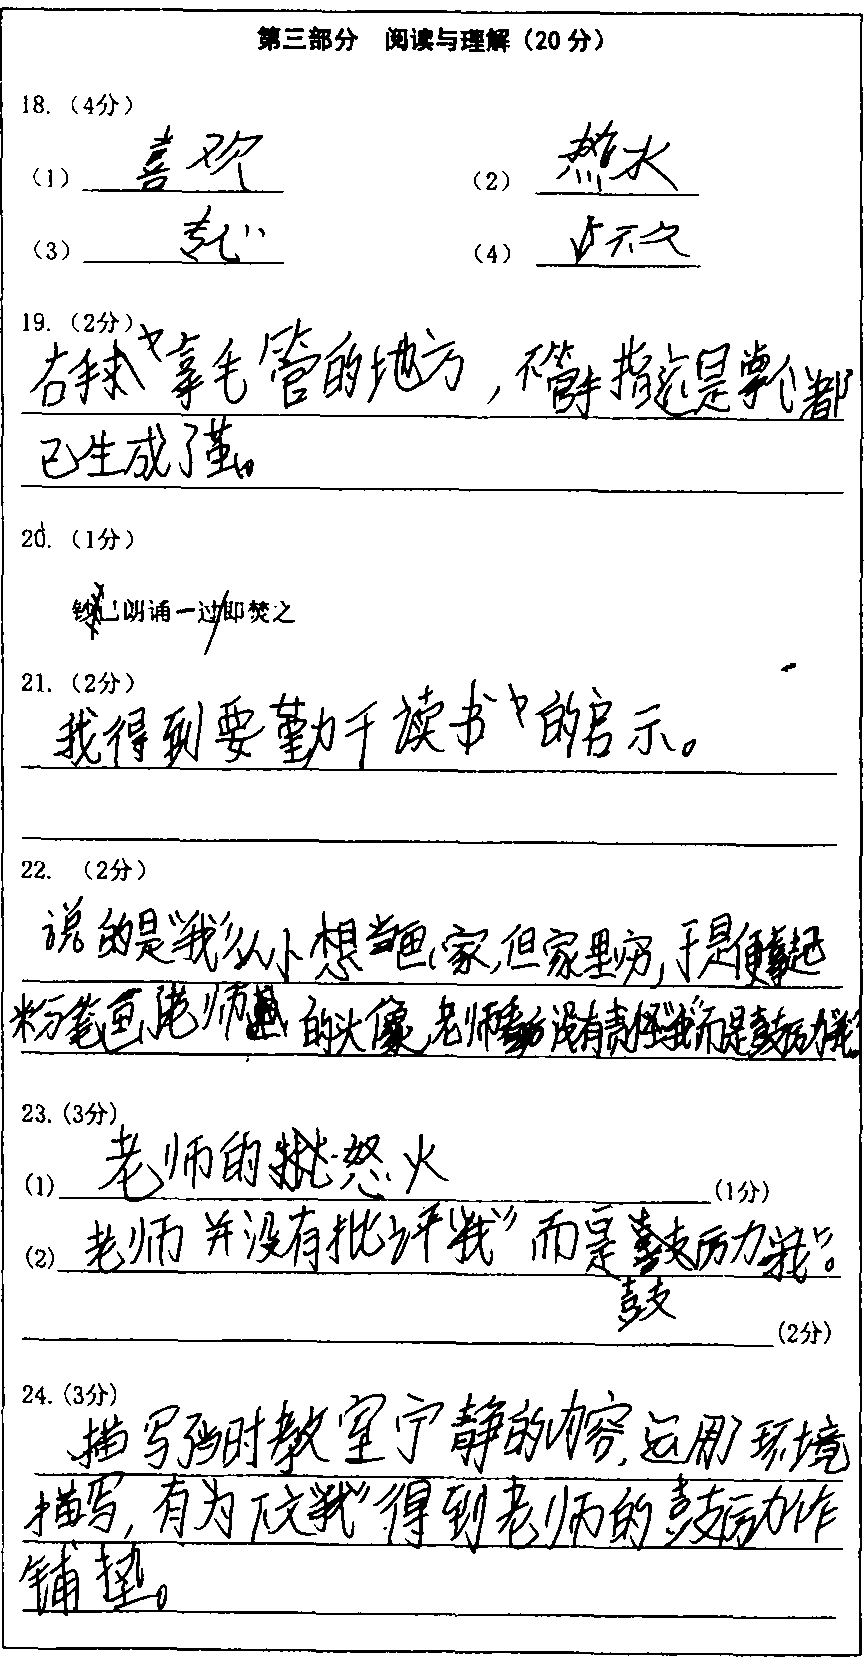 第三部分 阅读与理解（20分）
18.（4分）
（1）喜欢 （2）热水
（3） （4）
19.（2分）
右手拿毛管的地方，不管手指还是掌心都
已生成了茧。
20.（1分）
钞已朗诵一过/即焚之
21.（2分）
我得到要勤于读书的启示。
22.（2分）
说的是“我”从小想当画家，但家里穷，于是便拿起
粉笔画老师的头像，老师没有责怪“我”而是鼓励“我”
23.(3分)
(1) 老师的怒火 (1分)
(2) 老师并没有批评“我”而是鼓励“我”。
鼓
(2分)
24.(3分)
描写当时教室宁静的内容，运用了环境
描写，有为下文“我”得到老师的鼓励作
铺垫。